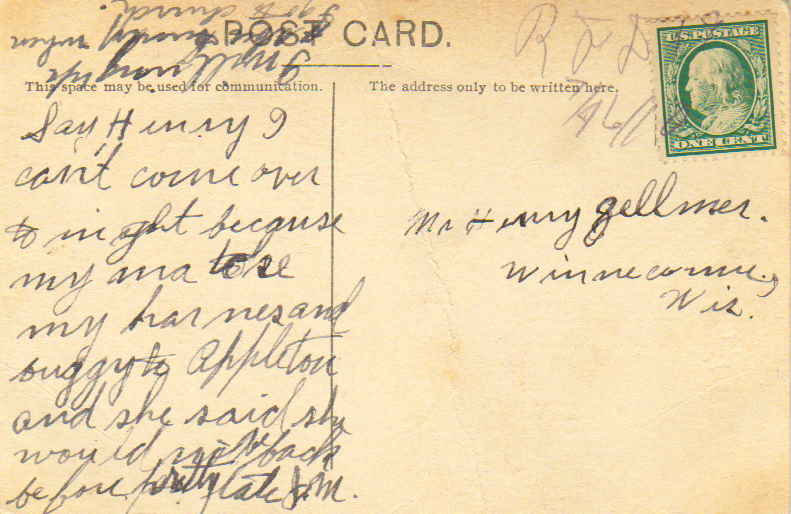 POST CARD.
This space may be used for communication.
The address only to be written here.
U.S. POSTAGE
ONE CENT
R F D
7/16/10
Say Henry I
can't come over
to night because
my ma
my harnes and
buggy to Appleton
and she said she
would not back
before pretty late J.M.
I
Sunday when
I go to church.
Mr Henry Zellmer.
Winneconne,
Wis.